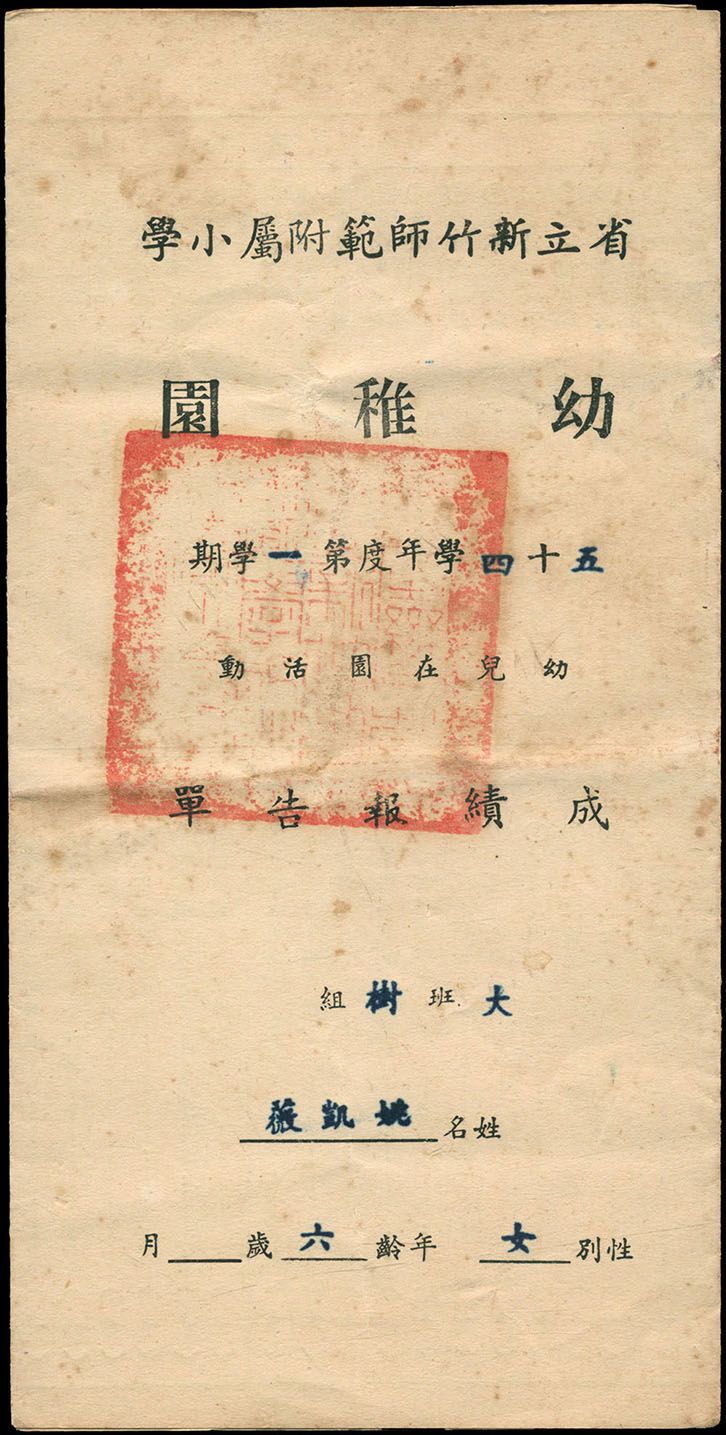 省立新竹師範附屬小學
幼稚園
五十四學年度第一學期
幼兒在園活動
成績報告單
大班樹組
姓名姚凱薇
性別女年齡六歲月